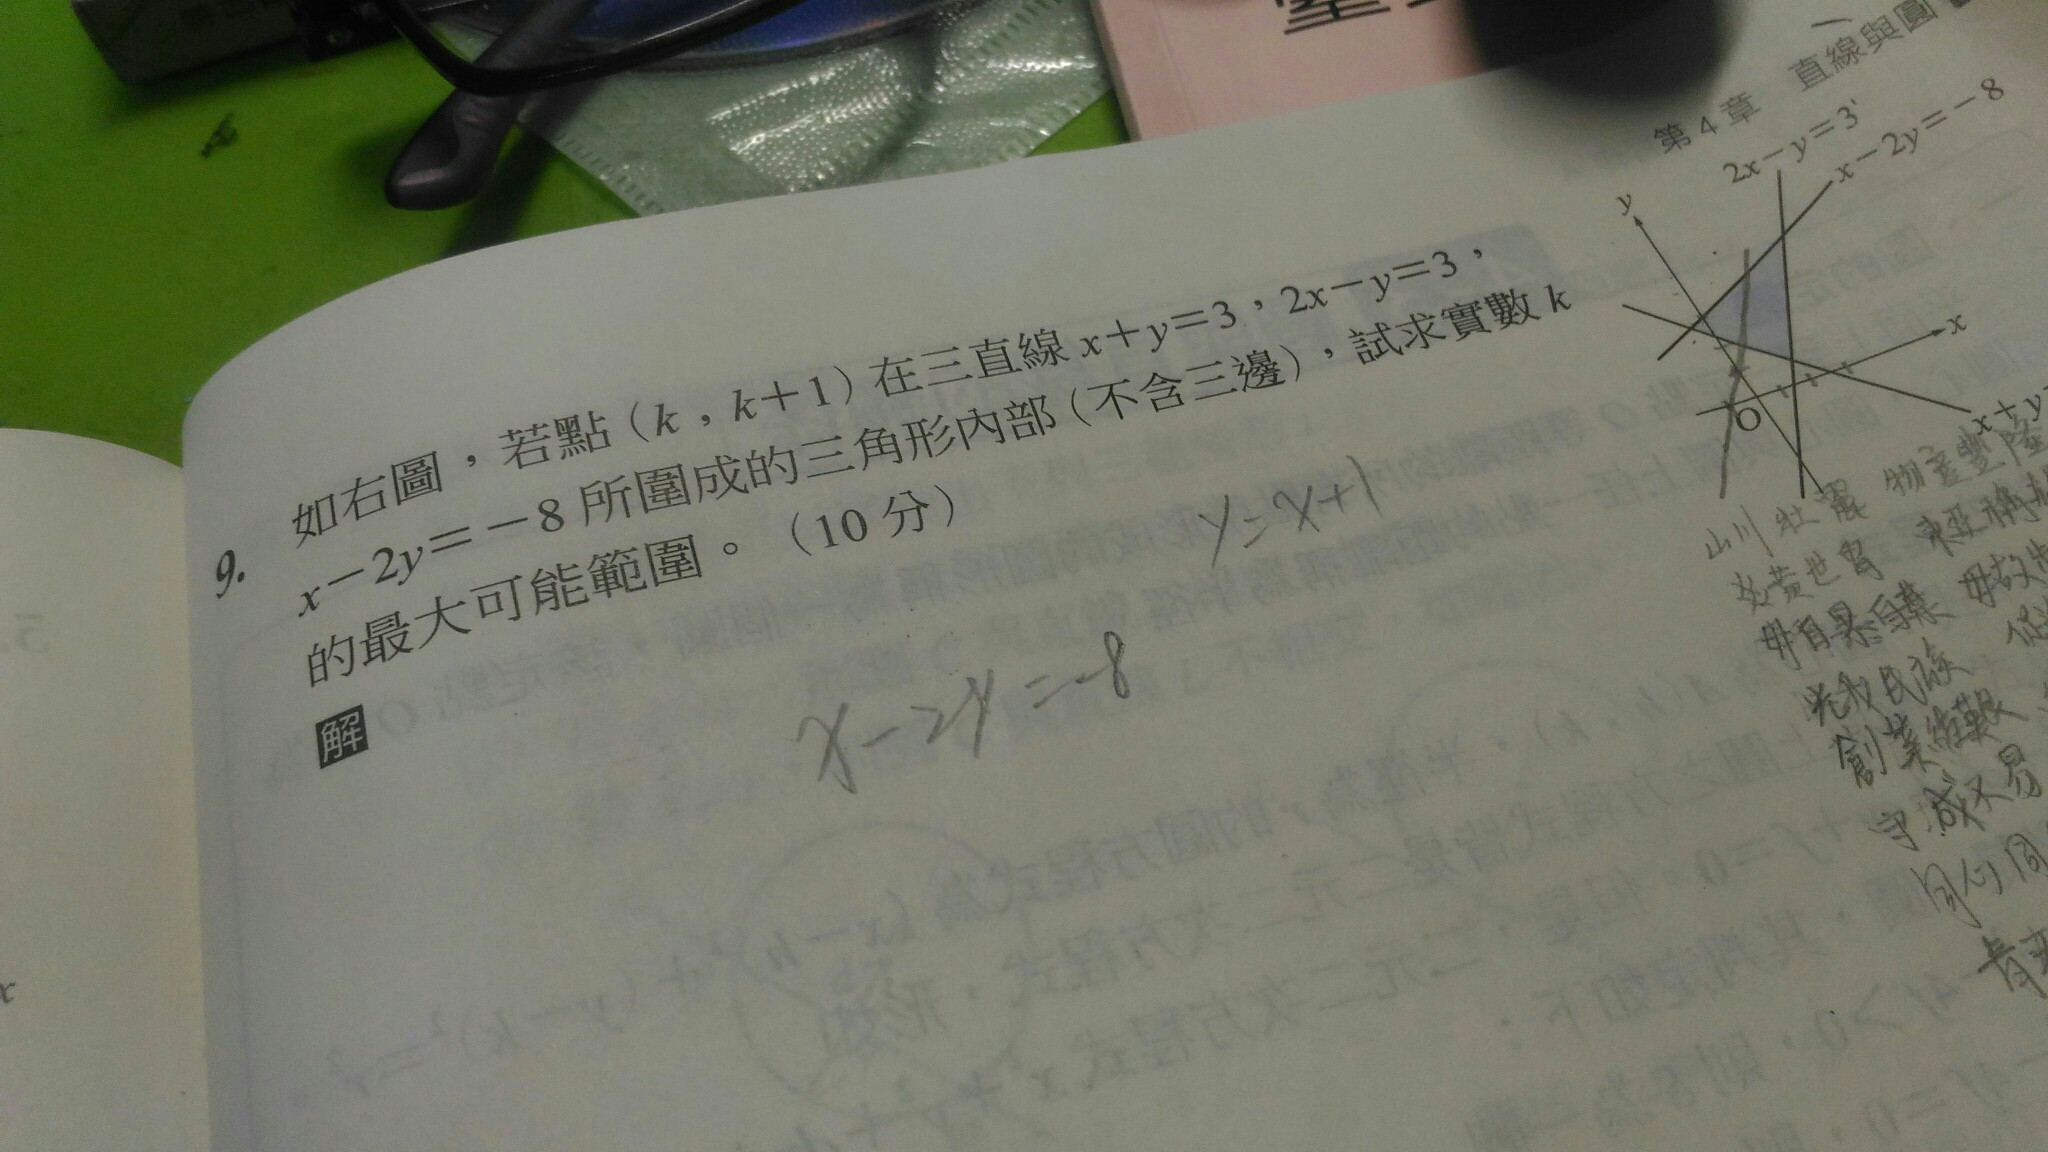 第4章 直線與圓
2x－y＝3
x－2y＝－8
y
x
O
x＋y
9. 如右圖，若點（k，k＋1）在三直線 x＋y＝3，2x－y＝3，
x－2y＝－8 所圍成的三角形內部（不含三邊），試求實數 k
的最大可能範圍。（10 分）
y=x+1
解
x-2y=-8
山川壯麗 物產豐隆
炎黃世胄 東亞稱雄
毋自暴自棄 毋故步
光我民族 促進
創業維艱
守成不易
同心同
5.
x